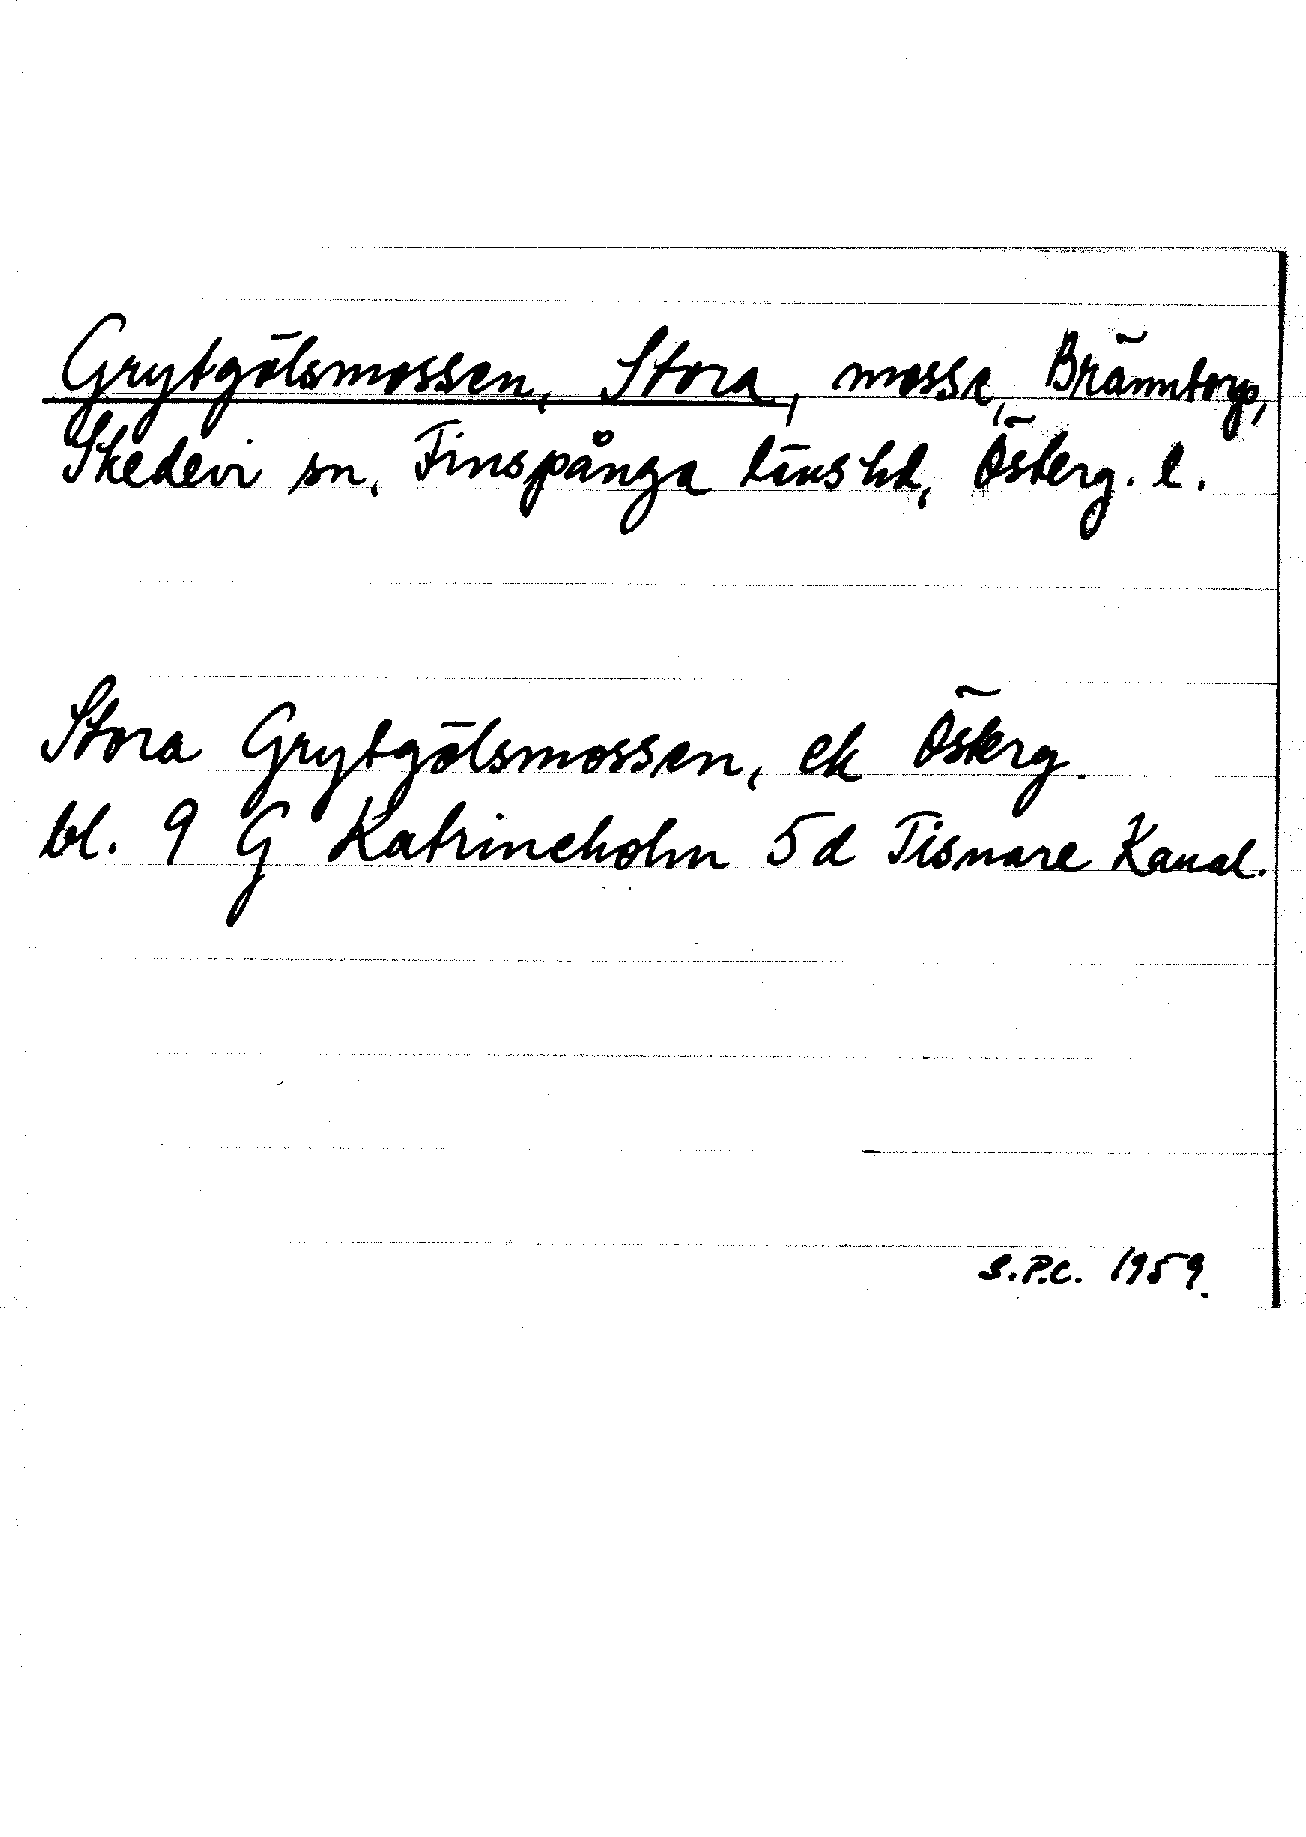 Grytgölsmossen, Stora, mosse, Bränntorp,
Skedevi sn, Finspånga läns hd, Österg. l.
Stora Grytgölsmossen, ek Österg.
bl. 9 G Katrineholm 5d Tisnare Kanal.
S.P.C. 1959.